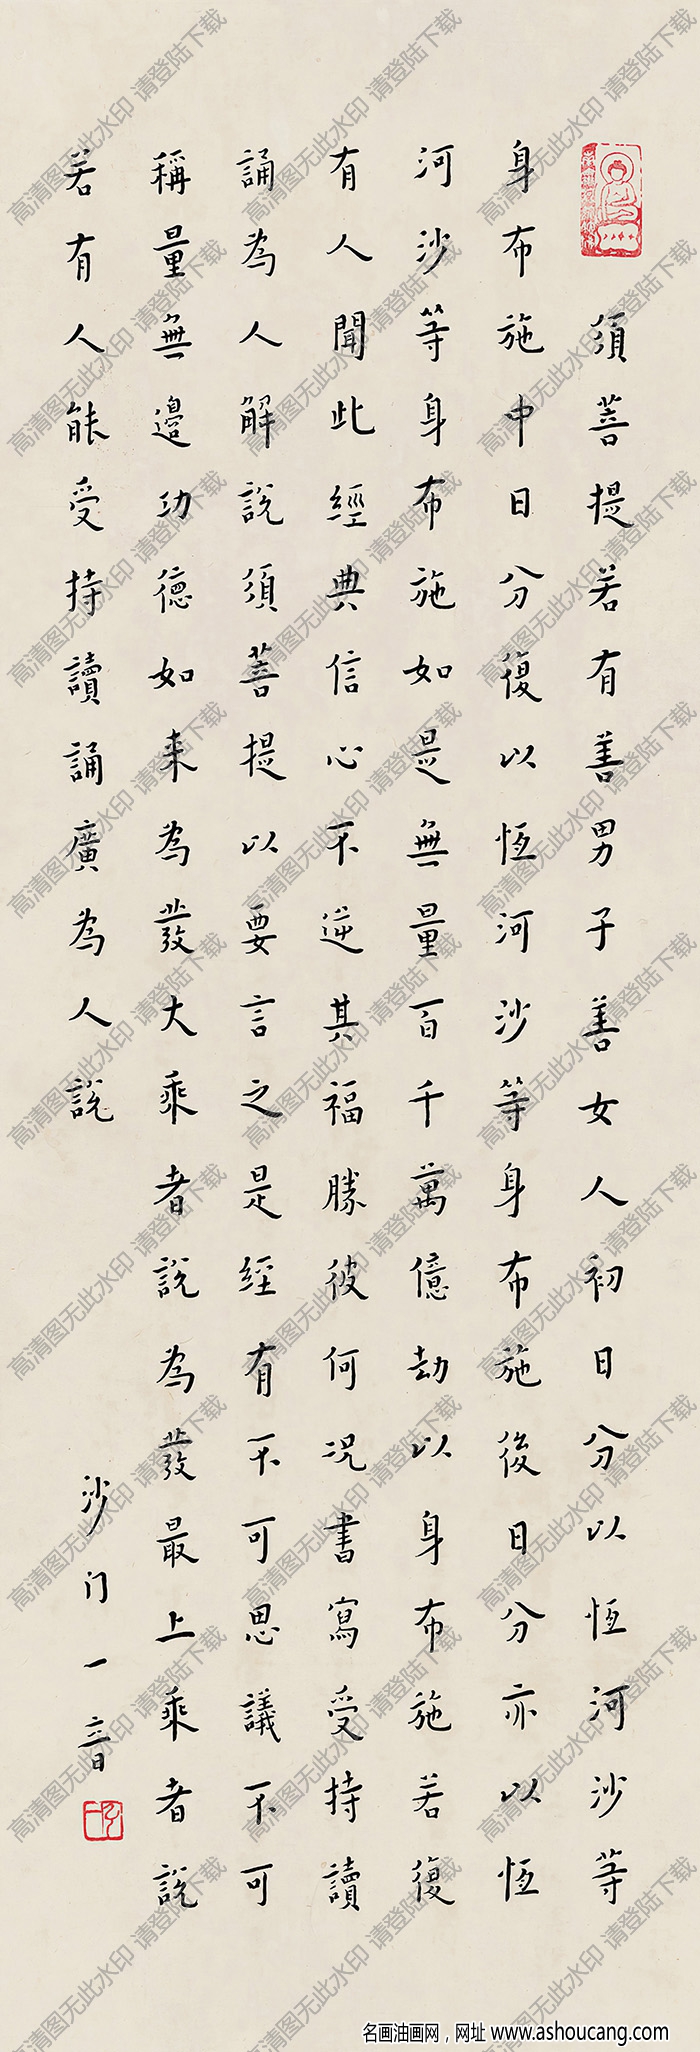 須菩提若有善男子善女人初日分以恆河沙等
身布施中日分復以恆河沙等身布施後日分亦以恆
河沙等身布施如是無量百千萬億劫以身布施若復
有人聞此經典信心不逆其福勝彼何況書寫受持讀
誦為人解說須菩提以要言之是經有不可思議不可
稱量無邊功德如来為發大乘者說為發最上乘者說
若有人能受持讀誦廣為人說
沙门一音
高清图无此水印 请登陆下载
名画油画网，网址 www.ashoucang.com